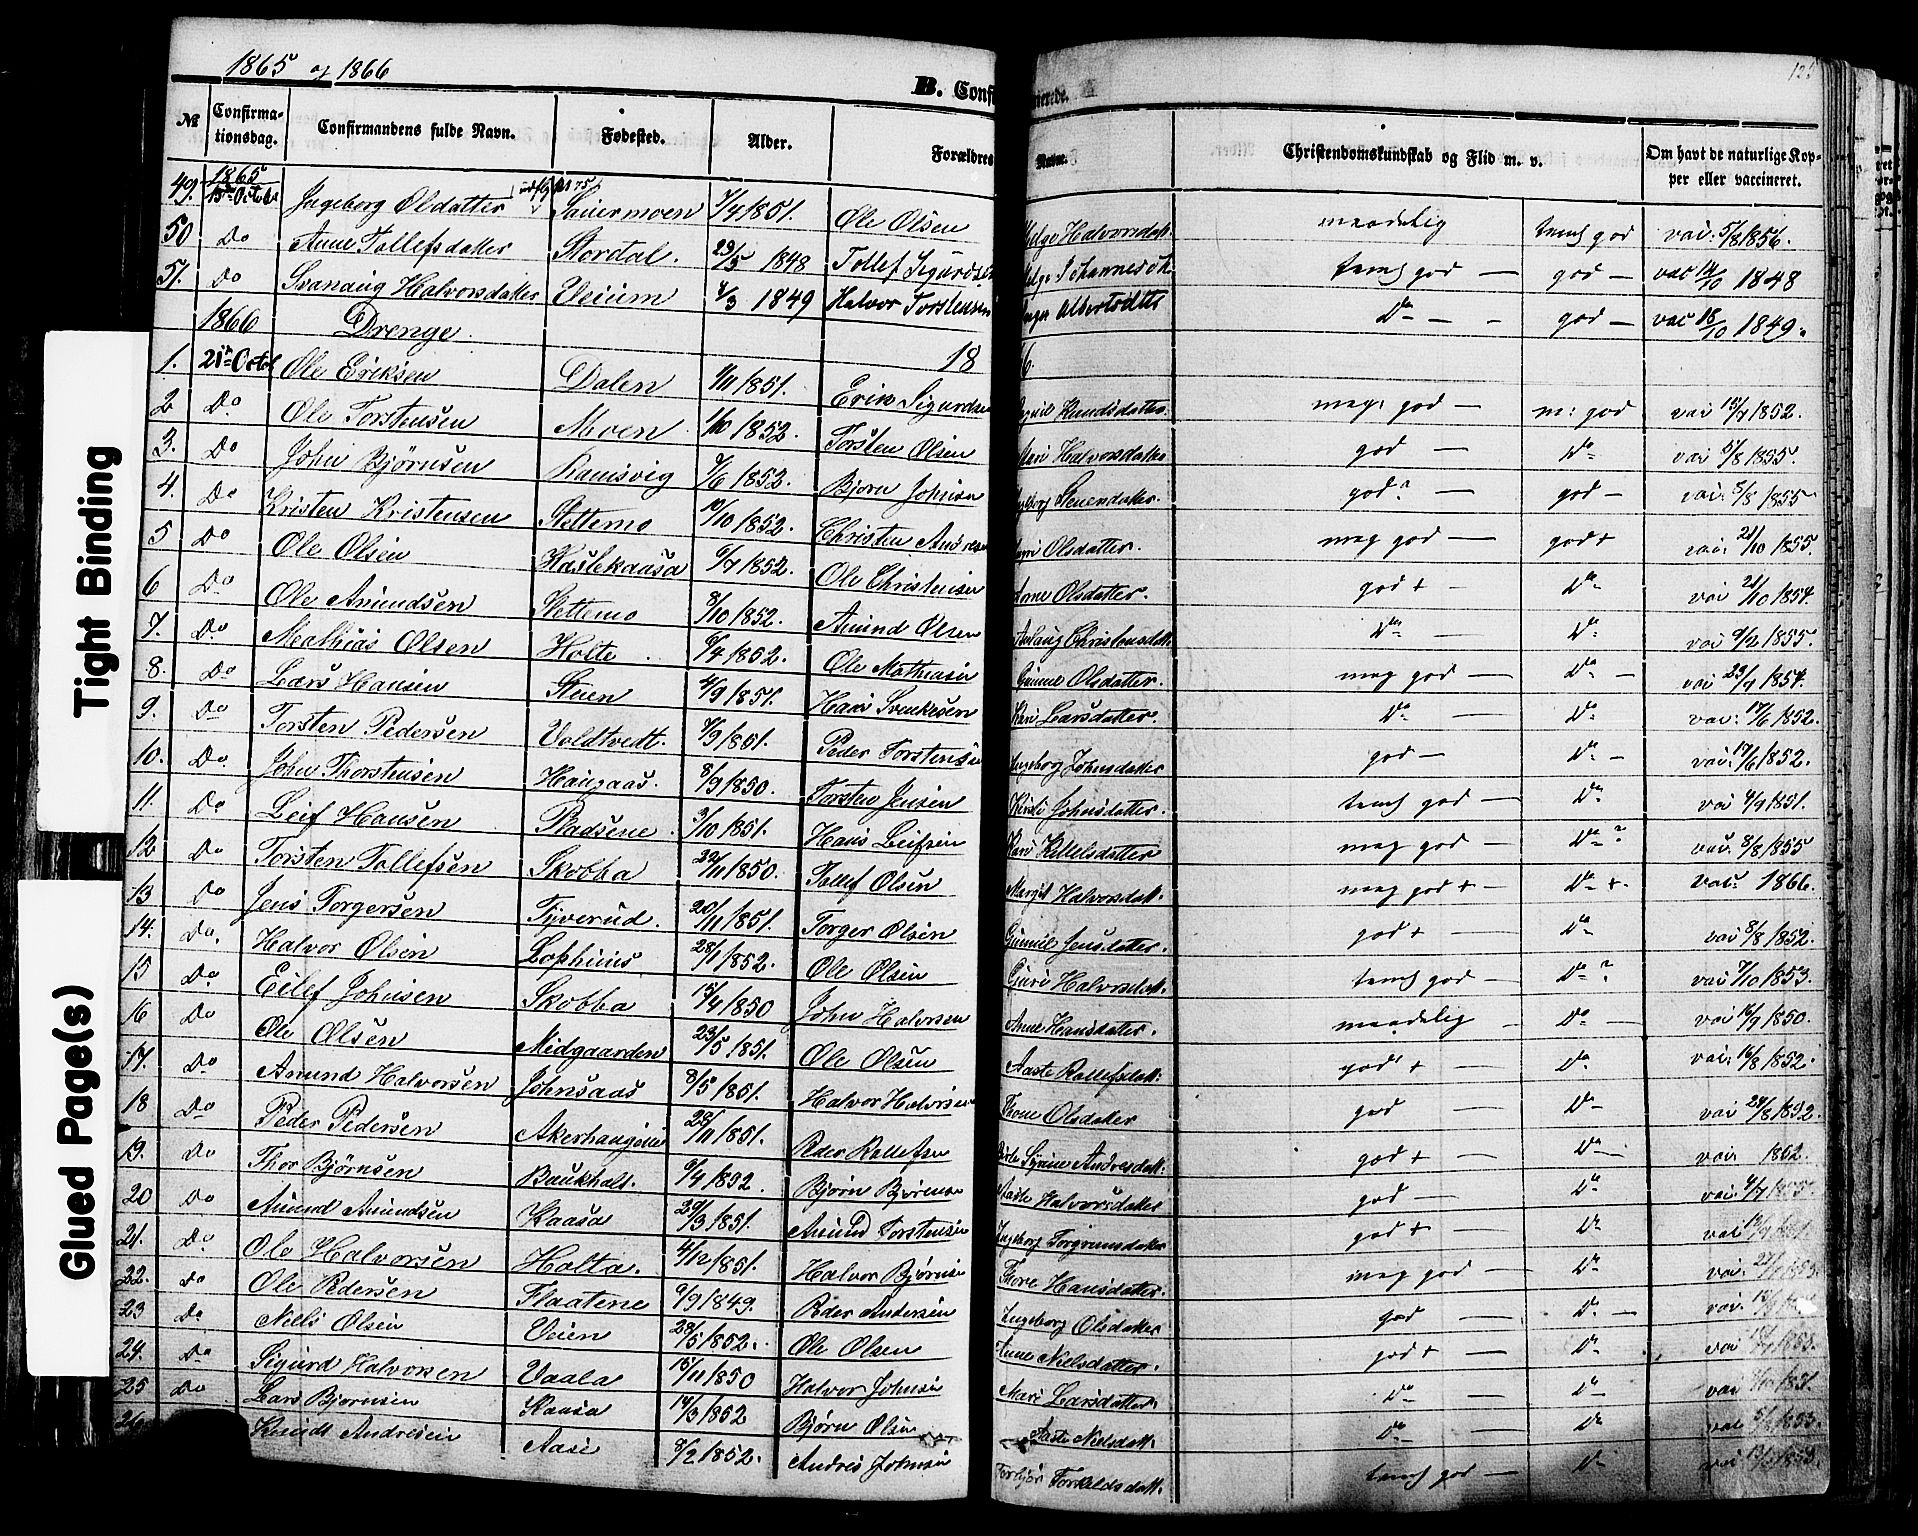 1865 og 1866
B. Confi
merede.
125
№ Confirma-tionsdag. Confirmandens fulde Navn. Fødested. Alder. Forældres Navn. Christendomskundskab og Flid m. v. Om havt de naturlige Kopper eller vaccineret.
49. 1865 15de Octob Ingeborg Olsdatter Sauermoen 7/4 1851. Ole Olsen Helge Halvorsdatt. maadelig temf god vac. 5/8 1856.
50 Do Anne Tollefsdatter Stordal. 23/5 1848 Tollef Sigurdsen Helge Johannesd. temf god — god — vac 14/10 1848
51. Do Svanaug Halvorsdatter Veium 4/3 1849 Halvor Torstensen Inger Albertsdtt Do — god — vac 18/10 1849.
1866 Drenge. 18 6.
1. 21de Octob Ole Eriksen Dalen 1/11 1851. Erik Sigurdsen Knudsdatter. meg: god — m: god vac 13/7 1852.
2 Do Ole Torstensen Moen 1/10 1852. Torsten Olsen Mari Halvorsdatter god — Do vac 5/8 1855.
3. Do John Bjørnsen Ramsvig 7/6 1852. Bjørn Johnsen Ingeborg Steuersdatter. god? — god — vac. 5/8 1855
4. Do Kristen Kristensen Stettemo 19/10 1852. Christen Andresen Olsdatter. meg god — god + vac. 21/10 1855.
5 Do Ole Olsen Haslekaasa 6/7 1852. Ole Christensen Anne Olsdatter. god + — Do vac 21/10 1854.
6 Do Ole Amundsen Stettemo 8/10 1852. Amund Olsen Aslaug Christensdatt. Do — Do vac 9/2 1855.
7. Do Mathias Olsen Holte 6/4 1852. Ole Mathiasen Gunne Olsdatter. meg god — Do — vac 23/9 1854.
8. Do Lars Hansen Steien 4/9 1851. Hans Svenkesen Kari Larsdatter. Do — Do vac: 17/6 1852.
9. Do Torsten Pedersen Voldtvedt. 4/9 1851. Peder Torstensen Ingeborg Johnsdatter god — Do — vac: 17/6 1852.
10. Do John Thorstensen Haugaas. 8/9 1850. Torsten Jensen Kirsti Johnsdatter. temf god — Do vac 4/9 1851.
11. Do Leif Hansen Pladsene. 3/10 1851. Hans Leifsen Kari Kittelsdatter meg god — Do ? vac. 8/8 1855
12 Do Torsten Tollefsen Skobba 22/11 1850. Tollef Olsen Margit Halvorsdatt. meg god + — Do + vac. 1866.
13 Do Jens Torgersen Tyverud. 20/11 1851. Torger Olsen Gunnil Jensdatter. god + — Do vac 8/8 1852.
14. Do. Halvor Olsen Lophuus 28/1 1852. Ole Olsen Guri Halvorsdatt. temf god — Do ? vac 7/10 1853.
15 Do Eilef Johnsen Skobba 15/4 1850 John Halvorsen Anne Hansdatter. maadelig — Do — vac 16/9 1850.
16 Do Ole Olsen Midgaarden 23/5 1851. Ole Olsen Aaste Rollefsdatt: god + — Do vac: 16/8 1852.
17. Do Amund Halvorsen Johnsaas 8/5 1851. Halvor Halvorsen Thone Olsdatter god — Do — vac 24/8 1852.
18 Do Peder Pedersen Akerhaugene 28/11 1851. Peder Rollefsen Andresdatt. god + — Do — vac 1852.
19. Do Thor Bjørnsen Baukhalt. 6/4 1852. Bjørn Bjørnsen Aaste Halvorsdatter god — Do vac.
20 Do Amund Amundsen Kaasa 29/3 1851. Amund Torstensen Ingeborg Torgrimsdatter god + — Do vac
21. Do Ole Halvorsen Holta. 4/12 1851. Halvor Bjørnsen Thore Hansdatter. meg god — Do vac.
22. Do Ole Pedersen Flaatene 6/9 1849. Peder Andersen Ingeborg Olsdatter god — Do — vac.
23 Do Niels Olsen Veien 28/5 1852. Ole Olsen Anne Nielsdatter. god + — Do vac
24. Do Sigurd Halvorsen Vaala 15/11 1850 Halvor Johnsen Mari Larsdatter. Do — Do vac
25 Do Lars Bjørnsen Kaasa 14/3 1852 Bjørn Olsen Aaste Nielsdatt. Do — Do vac
26 Knudt Andresen Aase 8/2 1852. Andres Johnsen Torbjør Torkildsdatt. temf god — Do vac
Tight Binding
Glued Page(s)